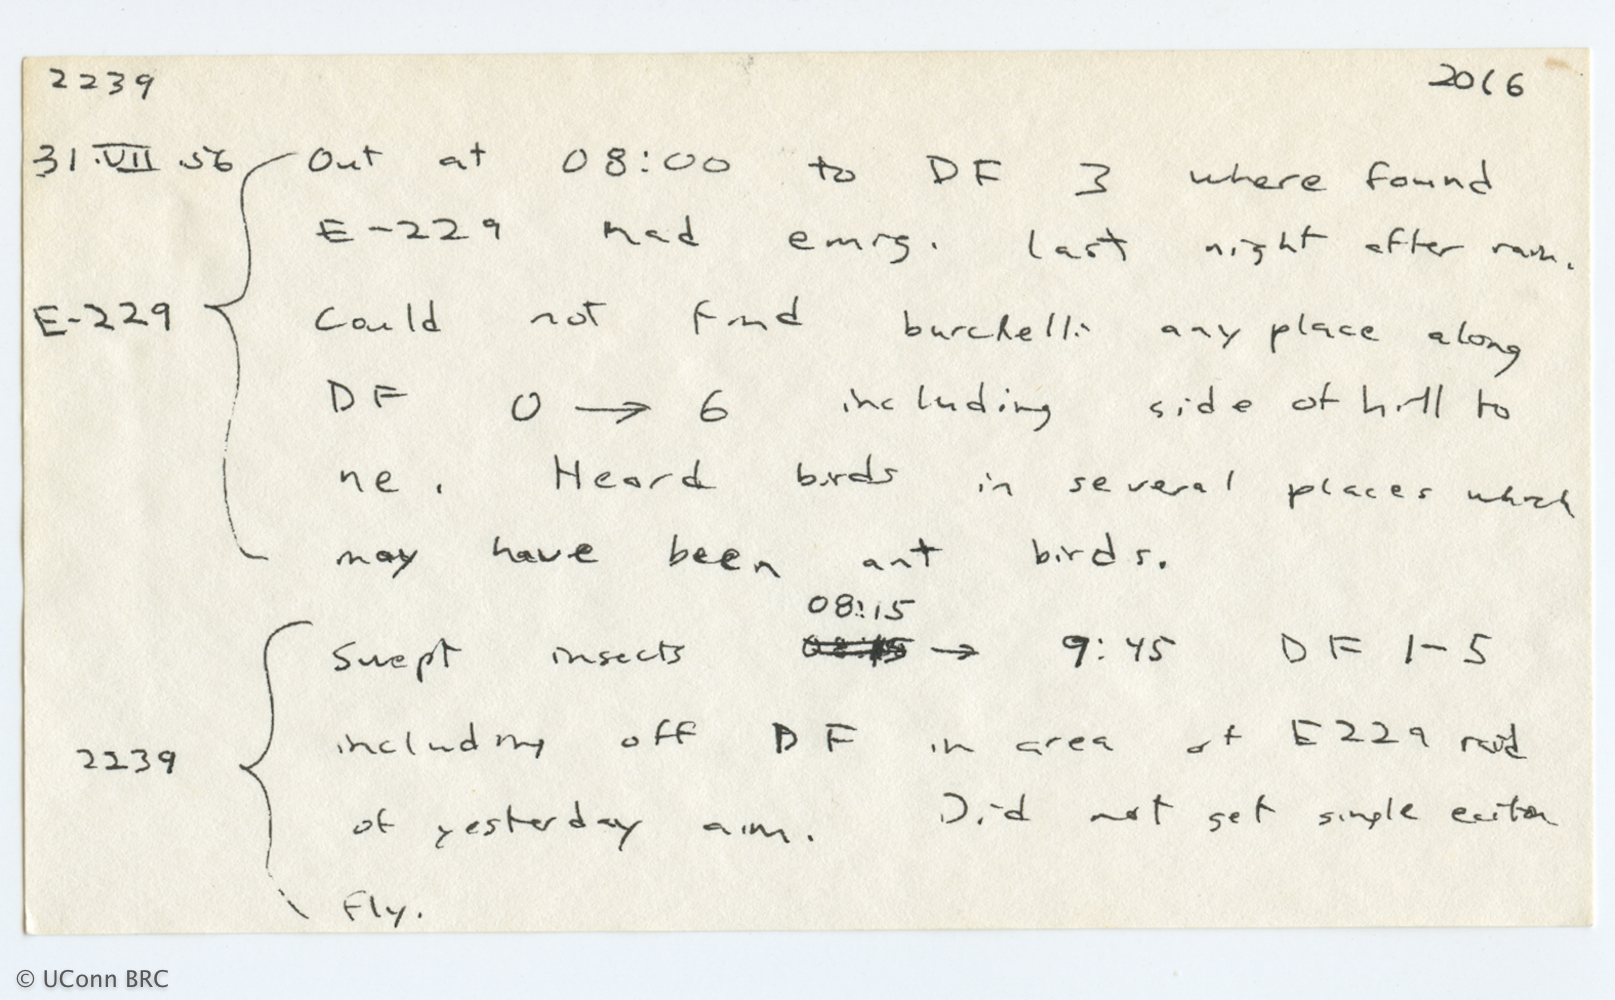 2239 2016
31.VII.56 Out at 08:00 to DF 3 where found
E-229 had emrg. last night after rain.
E-229 Could not find burchelli any place along
DF 0 → 6 including side of hill to
ne. Heard birds in several places which
may have been ant birds.
08:15
Swept insects → 9:45 DF 1-5
including off DF in area of E229 raid
2239
of yesterday a.m. Did not get single eciton
fly.
© UConn BRC